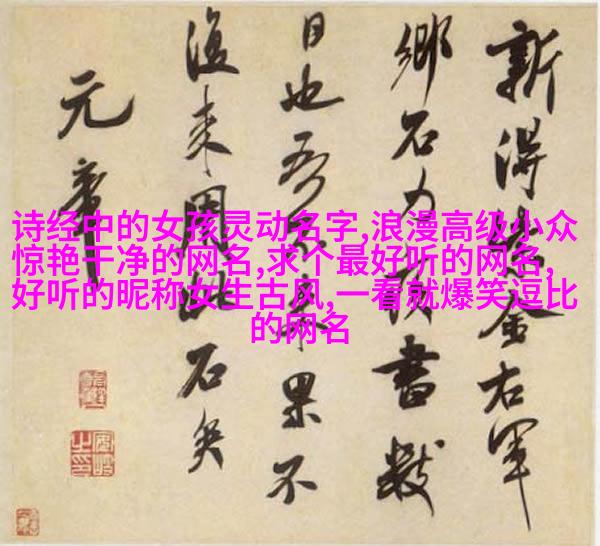 诗经中的女孩灵动名字,浪漫高级小众
惊艳干净的网名,求个最好听的网名,
好听的昵称女生古风,一看就爆笑逗比
的网名
新得紫金右軍
鄉石力疾書數
日也吾不来果不
復来用此石矣
元章